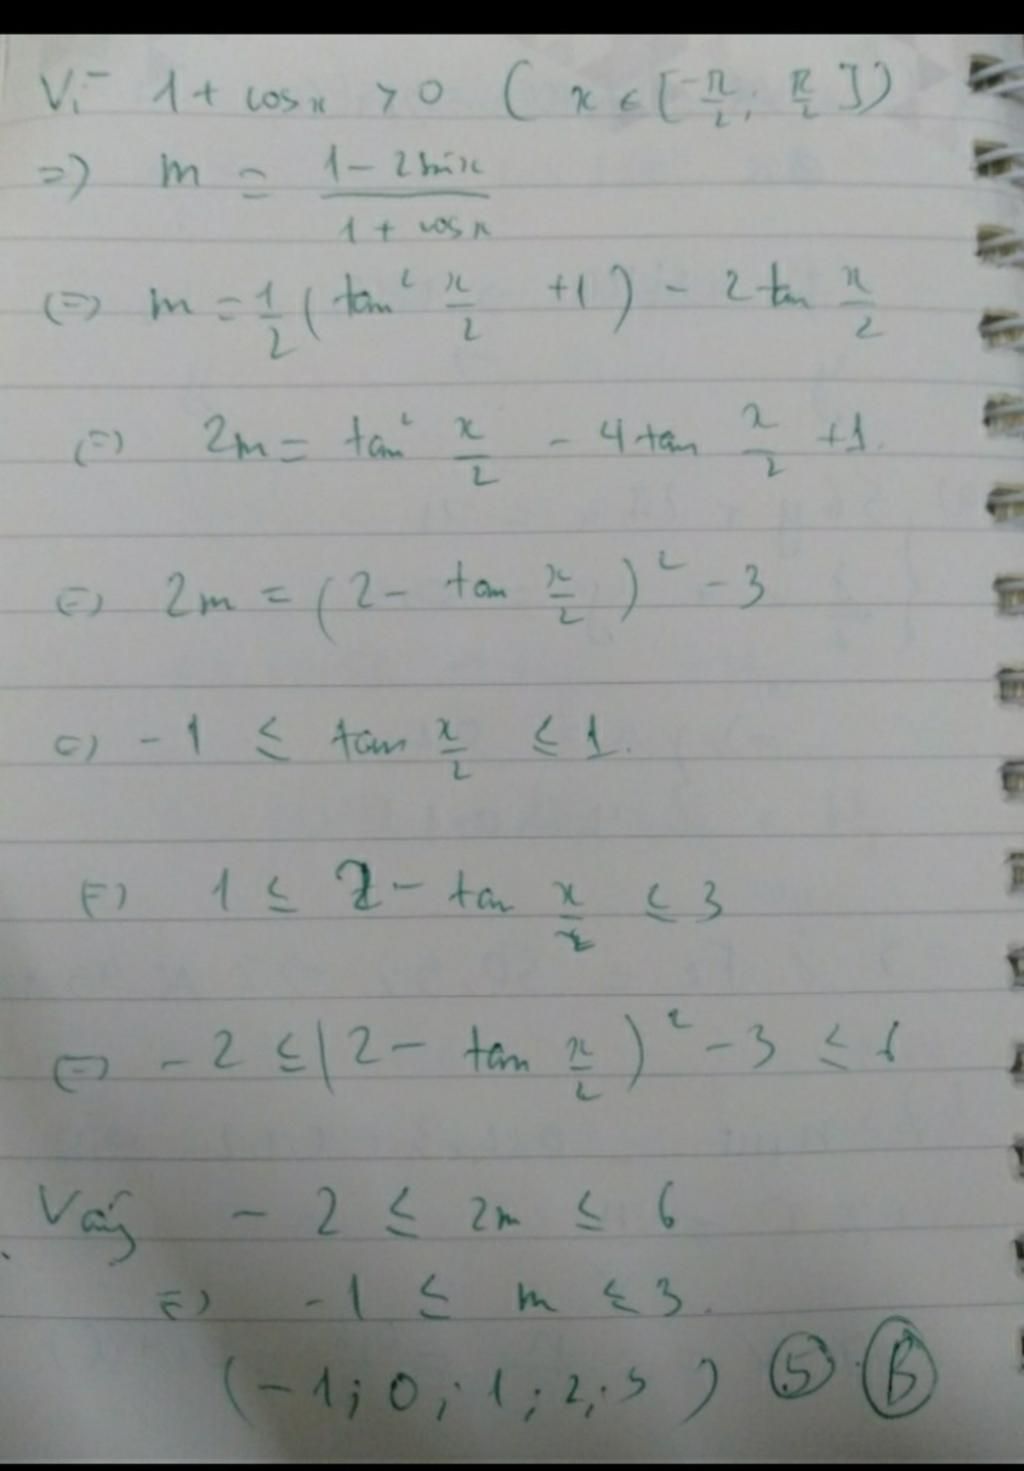 Vì 1 + cosx > 0 ( x ∈ [-π/2; π/2])
=> m = (1 - 2sinx)/(1 + cosx)
(=) m = 1/2 ( tan² x/2 + 1 ) - 2 tan x/2
(=) 2m = tan² x/2 - 4 tan x/2 + 1.
(=) 2m = (2 - tan x/2)² - 3
(=) -1 ≤ tan x/2 ≤ 1.
(=) 1 ≤ 2 - tan x/2 ≤ 3
(=) -2 ≤ (2 - tan x/2)² - 3 ≤ 6
Vậy - 2 ≤ 2m ≤ 6
(=) -1 ≤ m ≤ 3.
(-1; 0; 1; 2; 3) 5 B